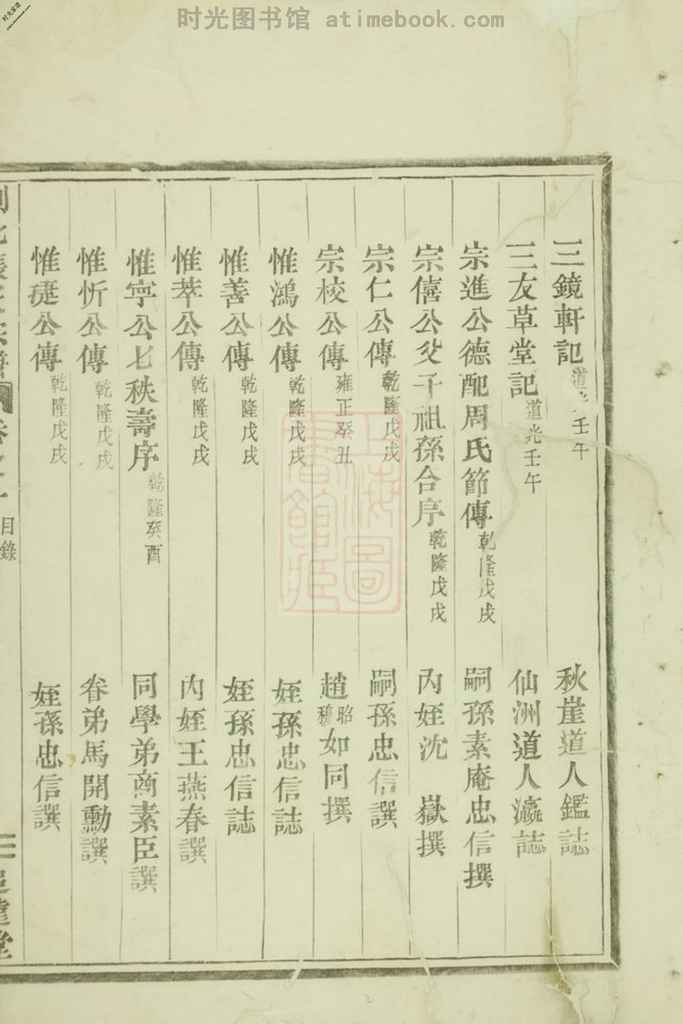 时光图书馆 atimebook.com
三鏡軒記 道光壬午 秋崖道人鑑誌
三友草堂記 道光壬午 仙洲道人瀛誌
宗進公德配周氏節傳 乾隆戊戌 嗣孫素庵忠信撰
宗僖公父子祖孫合序 乾隆戊戌 內姪沈嶽撰
宗仁公傳 乾隆戊戌 嗣孫忠信譔
宗校公傳 雍正癸丑 趙如同撰
惟鴻公傳 乾隆戊戌 姪孫忠信誌
惟善公傳 乾隆戊戌 姪孫忠信誌
惟萃公傳 乾隆戊戌 內姪王燕春譔
惟宁公七秩壽序 乾隆癸酉 同學弟商素臣譔
惟忻公傳 乾隆戊戌 眷弟馬開勳譔
惟疌公傳 乾隆戊戌 姪孫忠信譔
目錄